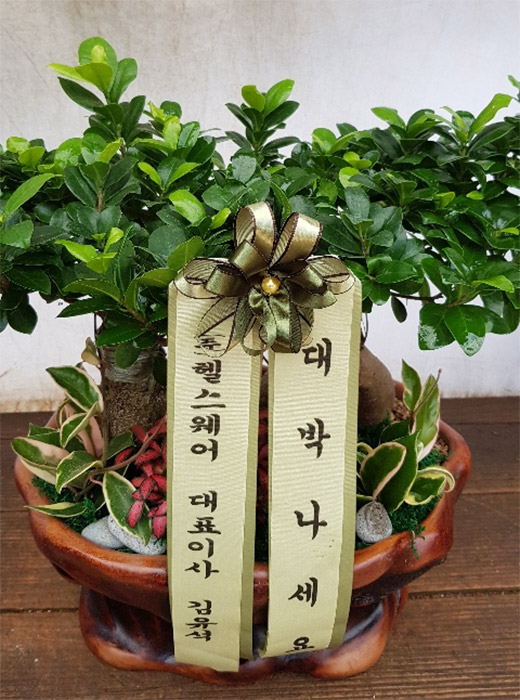 헬스웨어 대표이사 김유석
대박나세요